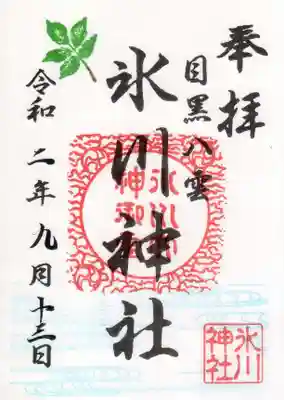 奉拝
目黒八雲
氷川神社
令和二年九月十三日
氷川
神社